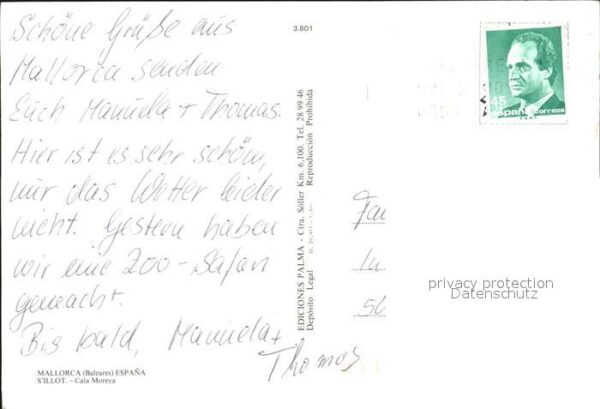 Schöne Grüße aus
Mallorca senden
Euch Manuela + Thomas.
Hier ist es sehr schön,
nur das Wetter leider
nicht. Gestern haben
wir eine Zoo-Safari
gemacht.
Bis bald, Manuela +
Thomas
MALLORCA (Baleares) ESPAÑA
S'ILLOT. - Cala Moreya
3801
EDICIONES PALMA - Ctra. Sóller Km. 6,100. Tel. 28 99 46
Depósito Legal
Reproducción Prohibida
48
España correos
Fam
In
56
privacy protection
Datenschutz